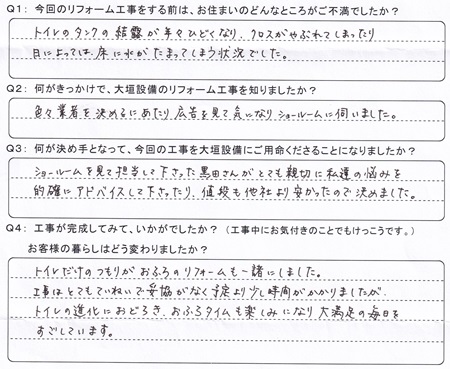 Q1: 今回のリフォーム工事をする前は、お住まいのどんなところがご不満でしたか?
トイレのタンクの結露が年々ひどくなり、クロスがやぶれてしまったり
日によっては、床に水がたまってしまう状況でした。
Q2: 何がきっかけで、大垣設備のリフォーム工事を知りましたか?
色々業者を決めるにあたり、広告を見て気になりショールームに伺いました。
Q3: 何が決め手となって、今回の工事を大垣設備にご用命くださることになりましたか?
ショールームを見て担当して下さった黒田さんがとても親切に私達の悩みを
的確にアドバイスして下さったり、値段も他社より安かったので決めました。
Q4: 工事が完成してみて、いかがでしたか? (工事中にお気付きのことでもけっこうです。)
お客様の暮らしはどう変わりましたか?
トイレだけのつもりがおふろのリフォームも一諸にしました。
工事はとてもていねいで妥協がなく予定より少し時間がかかりましたが、
トイレの進化におどろき、おふろタイムも楽しみになり大満足の毎日を
すごしています。